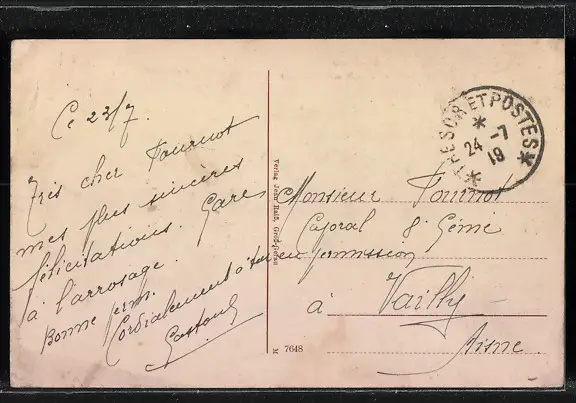 Ce 23/7.
Très cher Fournot
mes plus sincères
félicitations. Gare
à l'arrosage.
Bonne perm.
Cordialement à toi
Gaston
Verlag John Rahn, Grodtgerau
M 7648
TRESOR ET POSTES
24 -7
19
Monsieur Fournot
Caporal 8e Génie
en permission
à Vailly
Aisne